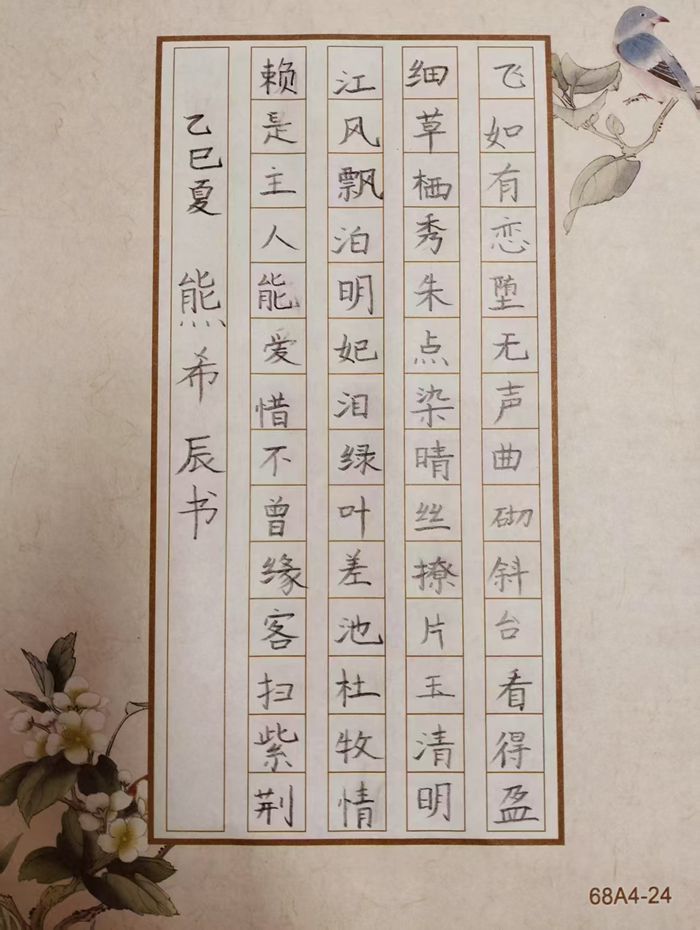 飞如有恋堕无声曲砌斜台看得盈
细草栖秀朱点染晴丝撩片玉清明
江风飘泊明妃泪绿叶差池杜牧情
赖是主人能爱惜不曾缘客扫紫荆
乙巳夏 熊希辰书
68A4-24